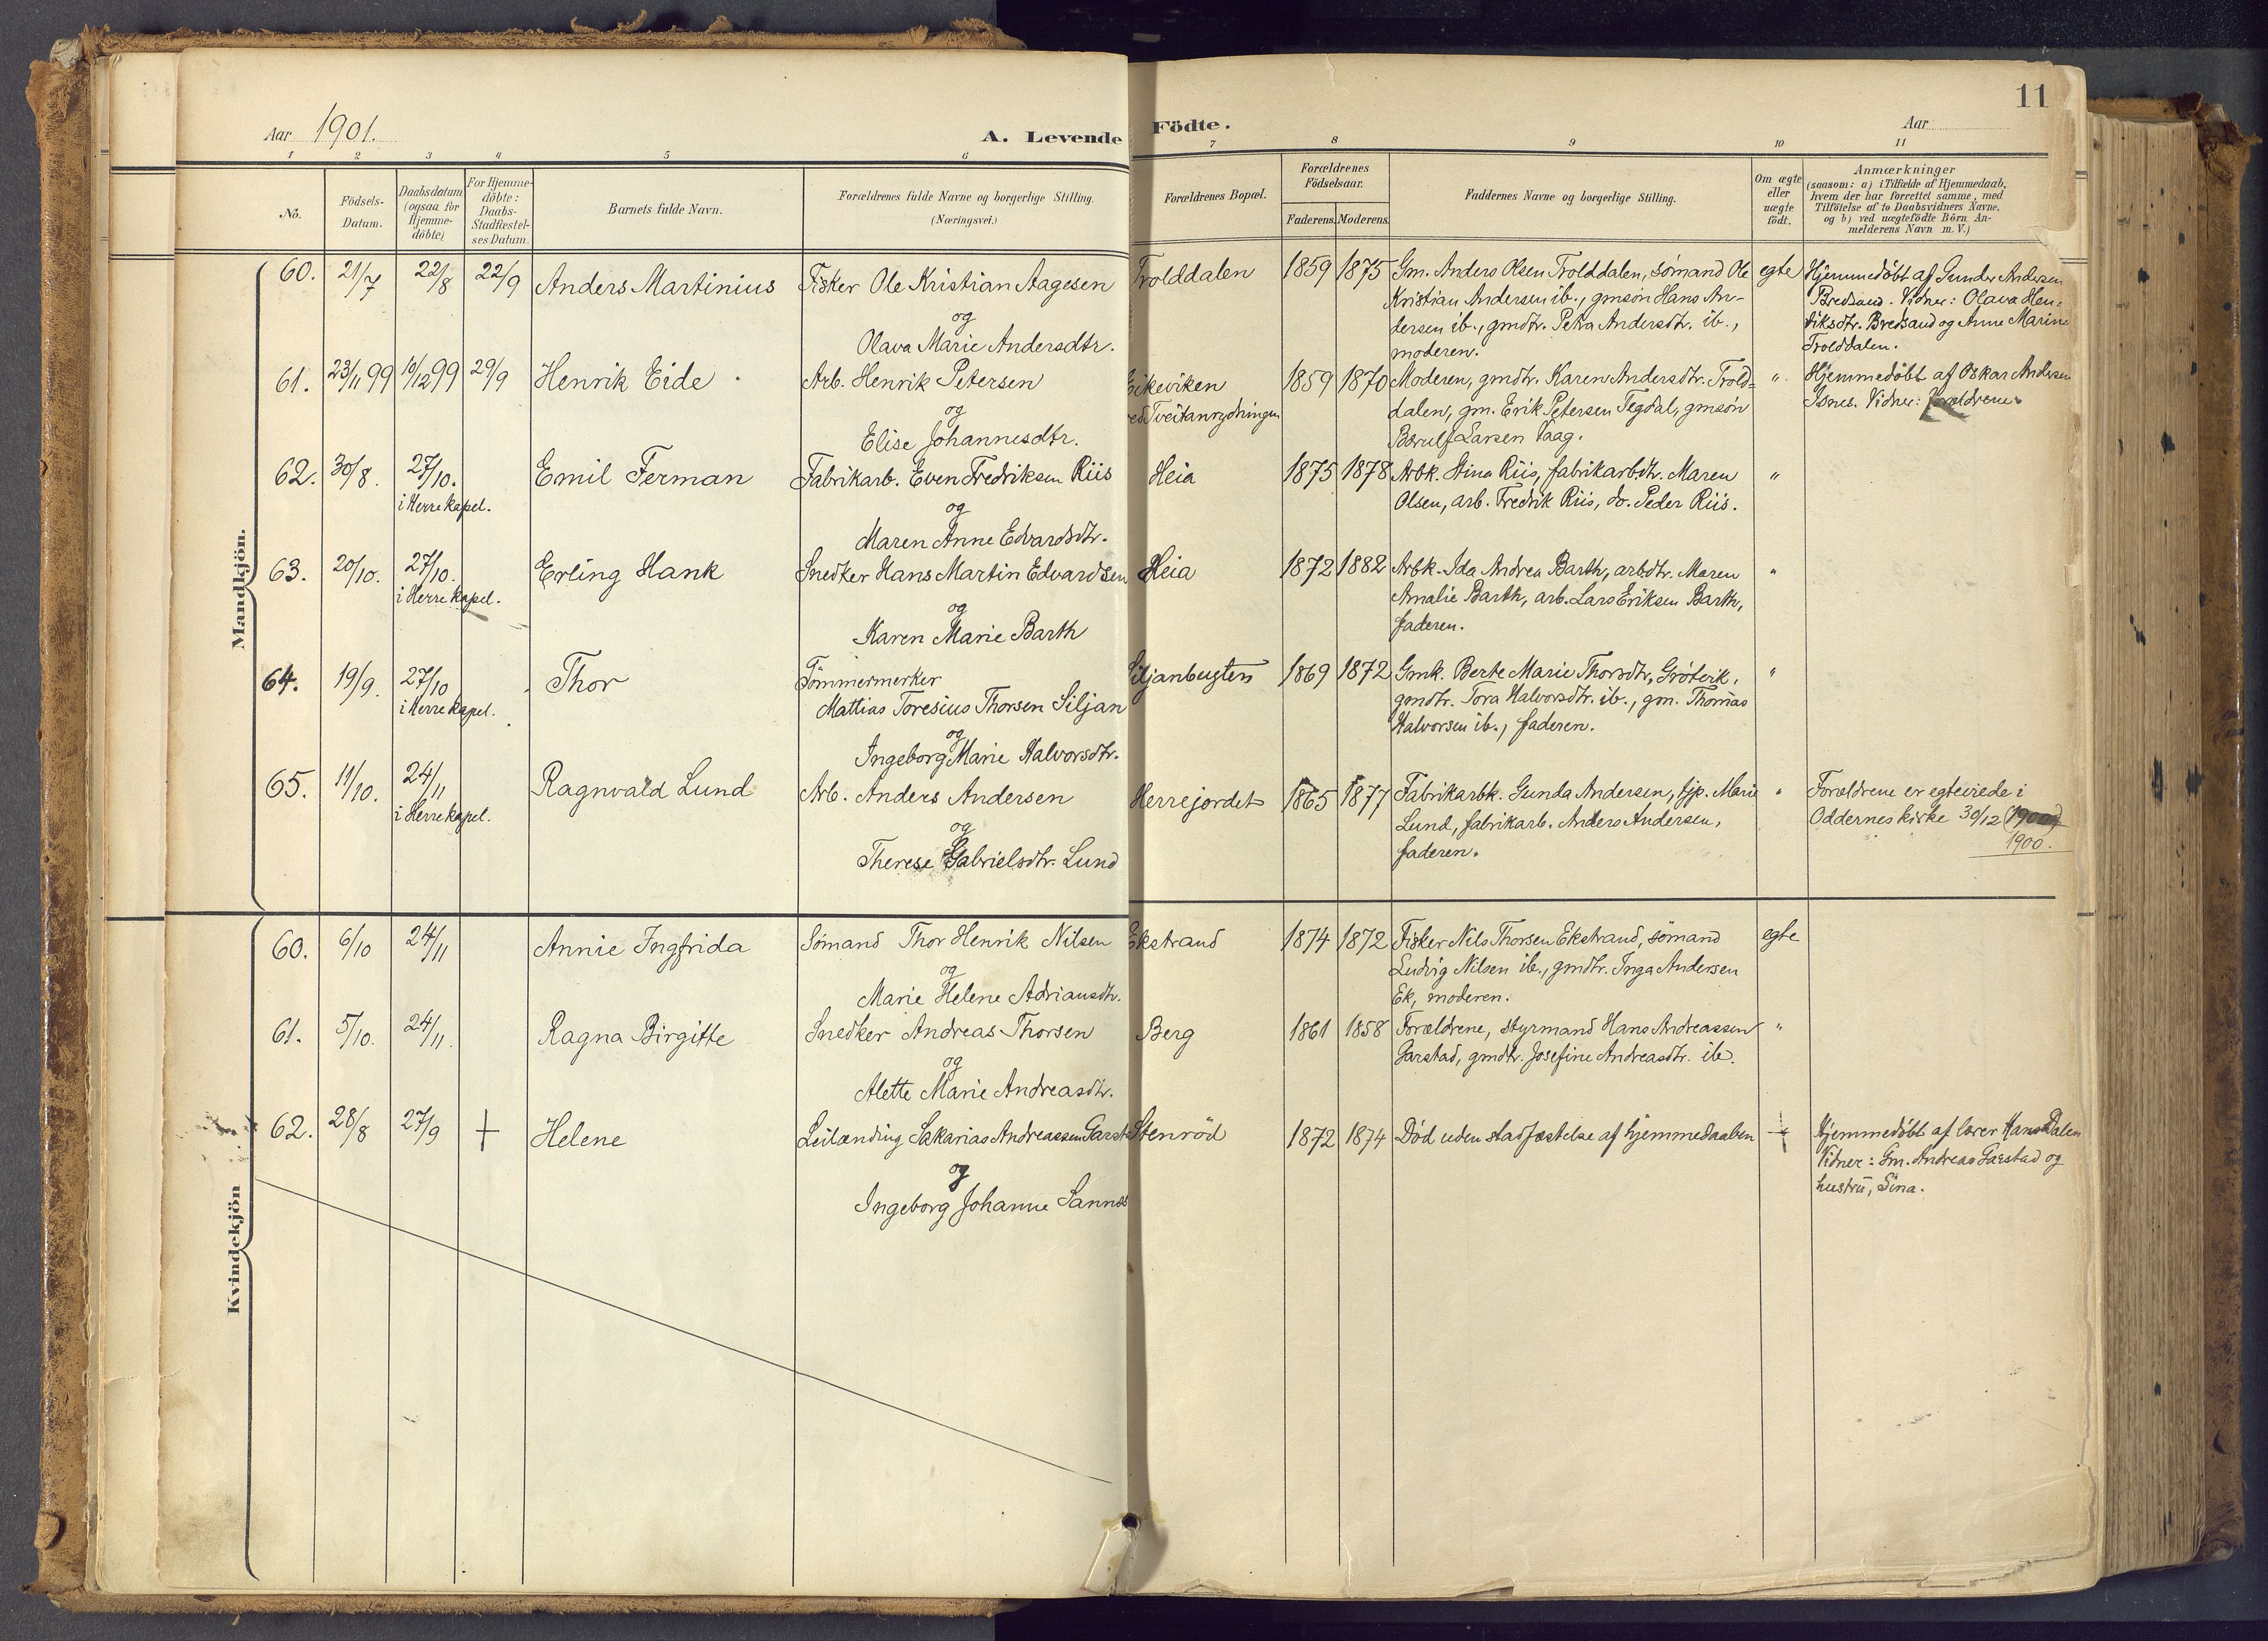 11
Aar 1901.
A. Levende Födte.
Aar
1 2 3 4 5 6 7 8 9 10 11
Nô.
Födsels-
Datum.
Daabsdatum
(ogsaa for
Hjemme-
döbte)
For Hjemme-
döbte:
Daabs-
Stadfæstel-
ses Datum.
Barnets fulde Navn.
Forældrenes fulde Navne og borgerlige Stilling.
(Næringsvei.)
Forældrenes Bopæl.
Forældrenes
Födselsaar.
Faderens. Moderens.
Faddernes Navne og borgerlige Stilling.
Om ægte
eller
uægte
födt.
Anmærkninger
(saasom: a) i Tilfælde af Hjemmedaab,
hvem der har forrettet samme, med
Tilföielse af to Daabsvidners Navne,
og b) ved uægtefödte Börn An-
melderens Navn m. V.)
Mandkjön.
60. 21/7 22/8 22/9 Anders Martinius
Fisker Ole Kristian Aagesen
og
Olava Marie Andersdtr.
Trolddalen 1859 1875
Gm. Anders Olsen Trolddalen, sømand Ole
Kristian Andersen ib., gmsøn Hans An-
dersen ib., gmdtr. Petra Andersdtr. ib.,
moderen.
egte
Hjemmedøbt af Gunder Andersen
Bredsand. Vidner: Olava Hen-
riksdtr. Bredsand og Anne Marine
Trolddalen.
61. 23/11 99 10/12 99 29/9 Henrik Eide
Arb. Henrik Petersen
og
Elise Johannesdtr.
Eikeviken
ved Tveitanrydningen
1859 1870
Moderen, gmdtr. Karen Andersdtr. Trold-
dalen, gm. Erik Petersen Tegdal, gmsøn
Larsen Vaag.
"
Hjemmedøbt af Oskar Andersen
Isnes. Vidner: Forældrene.
62. 30/8. 27/10.
i Herre kapel.
Emil Ferman
Fabrikarb. Even Fredriksen Riis
og
Maren Anne Edvardsdtr.
Heia 1875 1878
Arbk. Stina Riis, fabrikarbdtr. Maren
Olsen, arb. Fredrik Riis, do. Peder Riis.
"
63. 20/10. 27/10.
i Herre kapel.
Erling Hank
Snedker Hans Martin Edvardsen
og
Karen Marie Barth
Heia 1872 1882
Arbk. Ida Andrea Barth, arbdtr. Maren
Amalie Barth, arb. Lars Eriksen Barth,
faderen.
"
64. 19/9. 27/10
i Herre kapel.
Thor
Tømmermerker
Mattias Toresius Thorsen Siljan
og
Ingeborg Marie Halvorsdtr.
Siljanbugten 1869 1872
Gmk. Berte Marie Thorsdtr, Grötvik,
gmdtr. Tora Halvorsdtr. ib., gm. Thomas
Halvorsen ib., faderen.
"
65. 11/10. 24/11
i Herre kapel.
Ragnvald Lund
Arb. Anders Andersen
og
Therese Gabrielsdtr. Lund
Herrejordet 1865 1877
Fabrikarbk. Gunda Andersen, tjp. Marie
Lund, fabrikarb. Anders Andersen,
faderen.
"
Forældrene er egteviede i
Oddernes kirke 30/12
1900.
Kvindekjön
60. 6/10 24/11 Annie Ingfrida
Sømand Thor Henrik Nilsen
og
Marie Helene Adriansdtr.
Ekstrand 1874 1872
Fisker Nils Thorsen Ekstrand, sømand
Ludvig Nilsen ib., gmdtr. Inga Andersen
Ek, moderen.
egte
61. 5/10. 24/11. Ragna Birgitte
Snedker Andreas Thorsen
og
Alette Marie Andreasdtr.
Berg 1861 1858
Forældrene, styrmand Hans Andreassen
Garstad, gmdtr. Josefine Andreasdtr. ib.
"
62. 28/8 27/9 + Helene
Leilænding Sakarias Andreassen Garst
og
Ingeborg Johanne Sannes
Stenröd 1872 1874
Död uden stadfæstelse af hjemmedaaben
Hjemmedøbt af lærer Hans Dalen
Vidner: Gm. Andreas Garstad og
hustru, Sina.